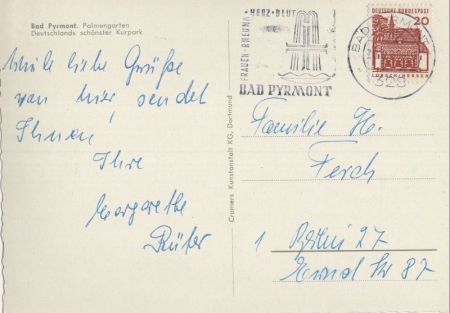 Bad Pyrmont. Palmengarten
Deutschlands schönster Kurpark
Viele liebe Grüße
von hier sendet
Ihnen!
Ihre
Margarethe
Cramers Kunstanstalt KG, Dortmund
HERZ • BLUT
FRAUEN • RHEUMA
BAD PYRMONT
BAD PYRMONT
328
DEUTSCHE BUNDESPOST
20
LORSCH/HESSEN
Familie H.
Ferch
1 Berlin 27
Str 87